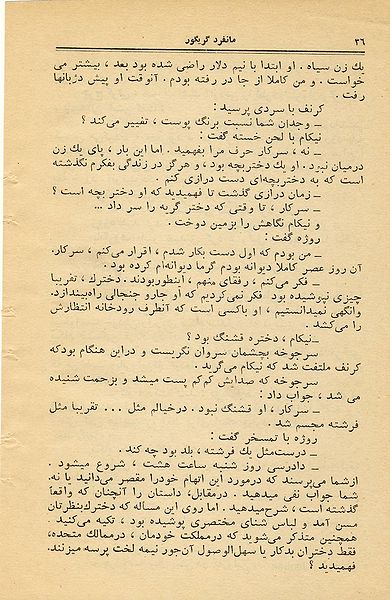 ۳۶ مانفرد گریگور
یك زن سیاه . او ابتدا با نیم دلار راضی شده بود بعد ، بیشتر می
خواست . و من کاملا از جا در رفته بودم . آنوقت او پیش دژبانها
رفت .
کرنف با سردی پرسید :
ـ وجدان شما نسبت برنگ پوست ، تغییر می‌کند ؟
نیکام با لحن خسته گفت :
ـ نه ، سرکار حرف مرا بفهمید . اما این بار ، پای یك زن
درمیان نبود . او یك دختربچه بود ، و هرگز در زندگی بفکرم نگذشته
است که به دختربچه‌ای دست درازی کنم
ـ زمان درازی گذشت تا فهمیدید که او دختر بچه است ؟
ـ سرکار ، تا وقتی که دختر گریه را سر داد ...
و نیکام نگاهش را بزمین دوخت .
روژه گفت :
ـ من بودم که اول دست بکار شدم ، اقرار می‌کنم ، سرکار.
آن روز عصر کاملا دیوانه بودم گرما دیوانه‌ام کرده بود .
ـ فکر می‌کنم ، رفقای منهم ، اینطوربودند . دخترك ، تقریبا
چیزی نپوشیده بود فکر نمی‌کردیم که او جارو جنجالی راه‌بیندازد.
وانگهی نمیدانستیم ، او باکسی است که آنطرف رودخانه انتظارش
را می‌کشد .
ـ نیکام ، دختره قشنگ بود ؟
سرجوخه بچشمان سروان نگریست و دراین هنگام بودکه
کرنف ملتفت شد که نیکام می‌گرید .
سرجوخه که صدایش کم‌کم پست میشد و بزحمت شنیده
می شد ، جواب داد :
ـ سرکار ، او قشنگ نبود . درخیالم مثل ... تقریبا مثل
فرشته مجسم شد .
روژه با تمسخر گفت :
ـ درست‌مثل یك فرشته ، بلد بود چه کند .
ـ دادرسی روز شنبه ساعت هشت ، شروع میشود .
ازشما می‌پرسند که درمورد این اتهام خودرا مقصر می‌دانید یا نه.
شما جواب نفی میدهید . درمقابل، داستان را آنچنان که واقعاً
گذشته است ، شرح‌میدهید . اما روی این مساله که دخترك‌بنظرتان
مسن آمد و لباس شنای مختصری پوشیده بود ، تکیه می‌کنید .
همچنین متذکر می‌شوید که درمملکت خودمان ، درممالك متحده،
فقط دختران بدکار یا سهل‌الوصول آن‌جور نیمه لخت پرسه میزنند.
فهمیدید ؟